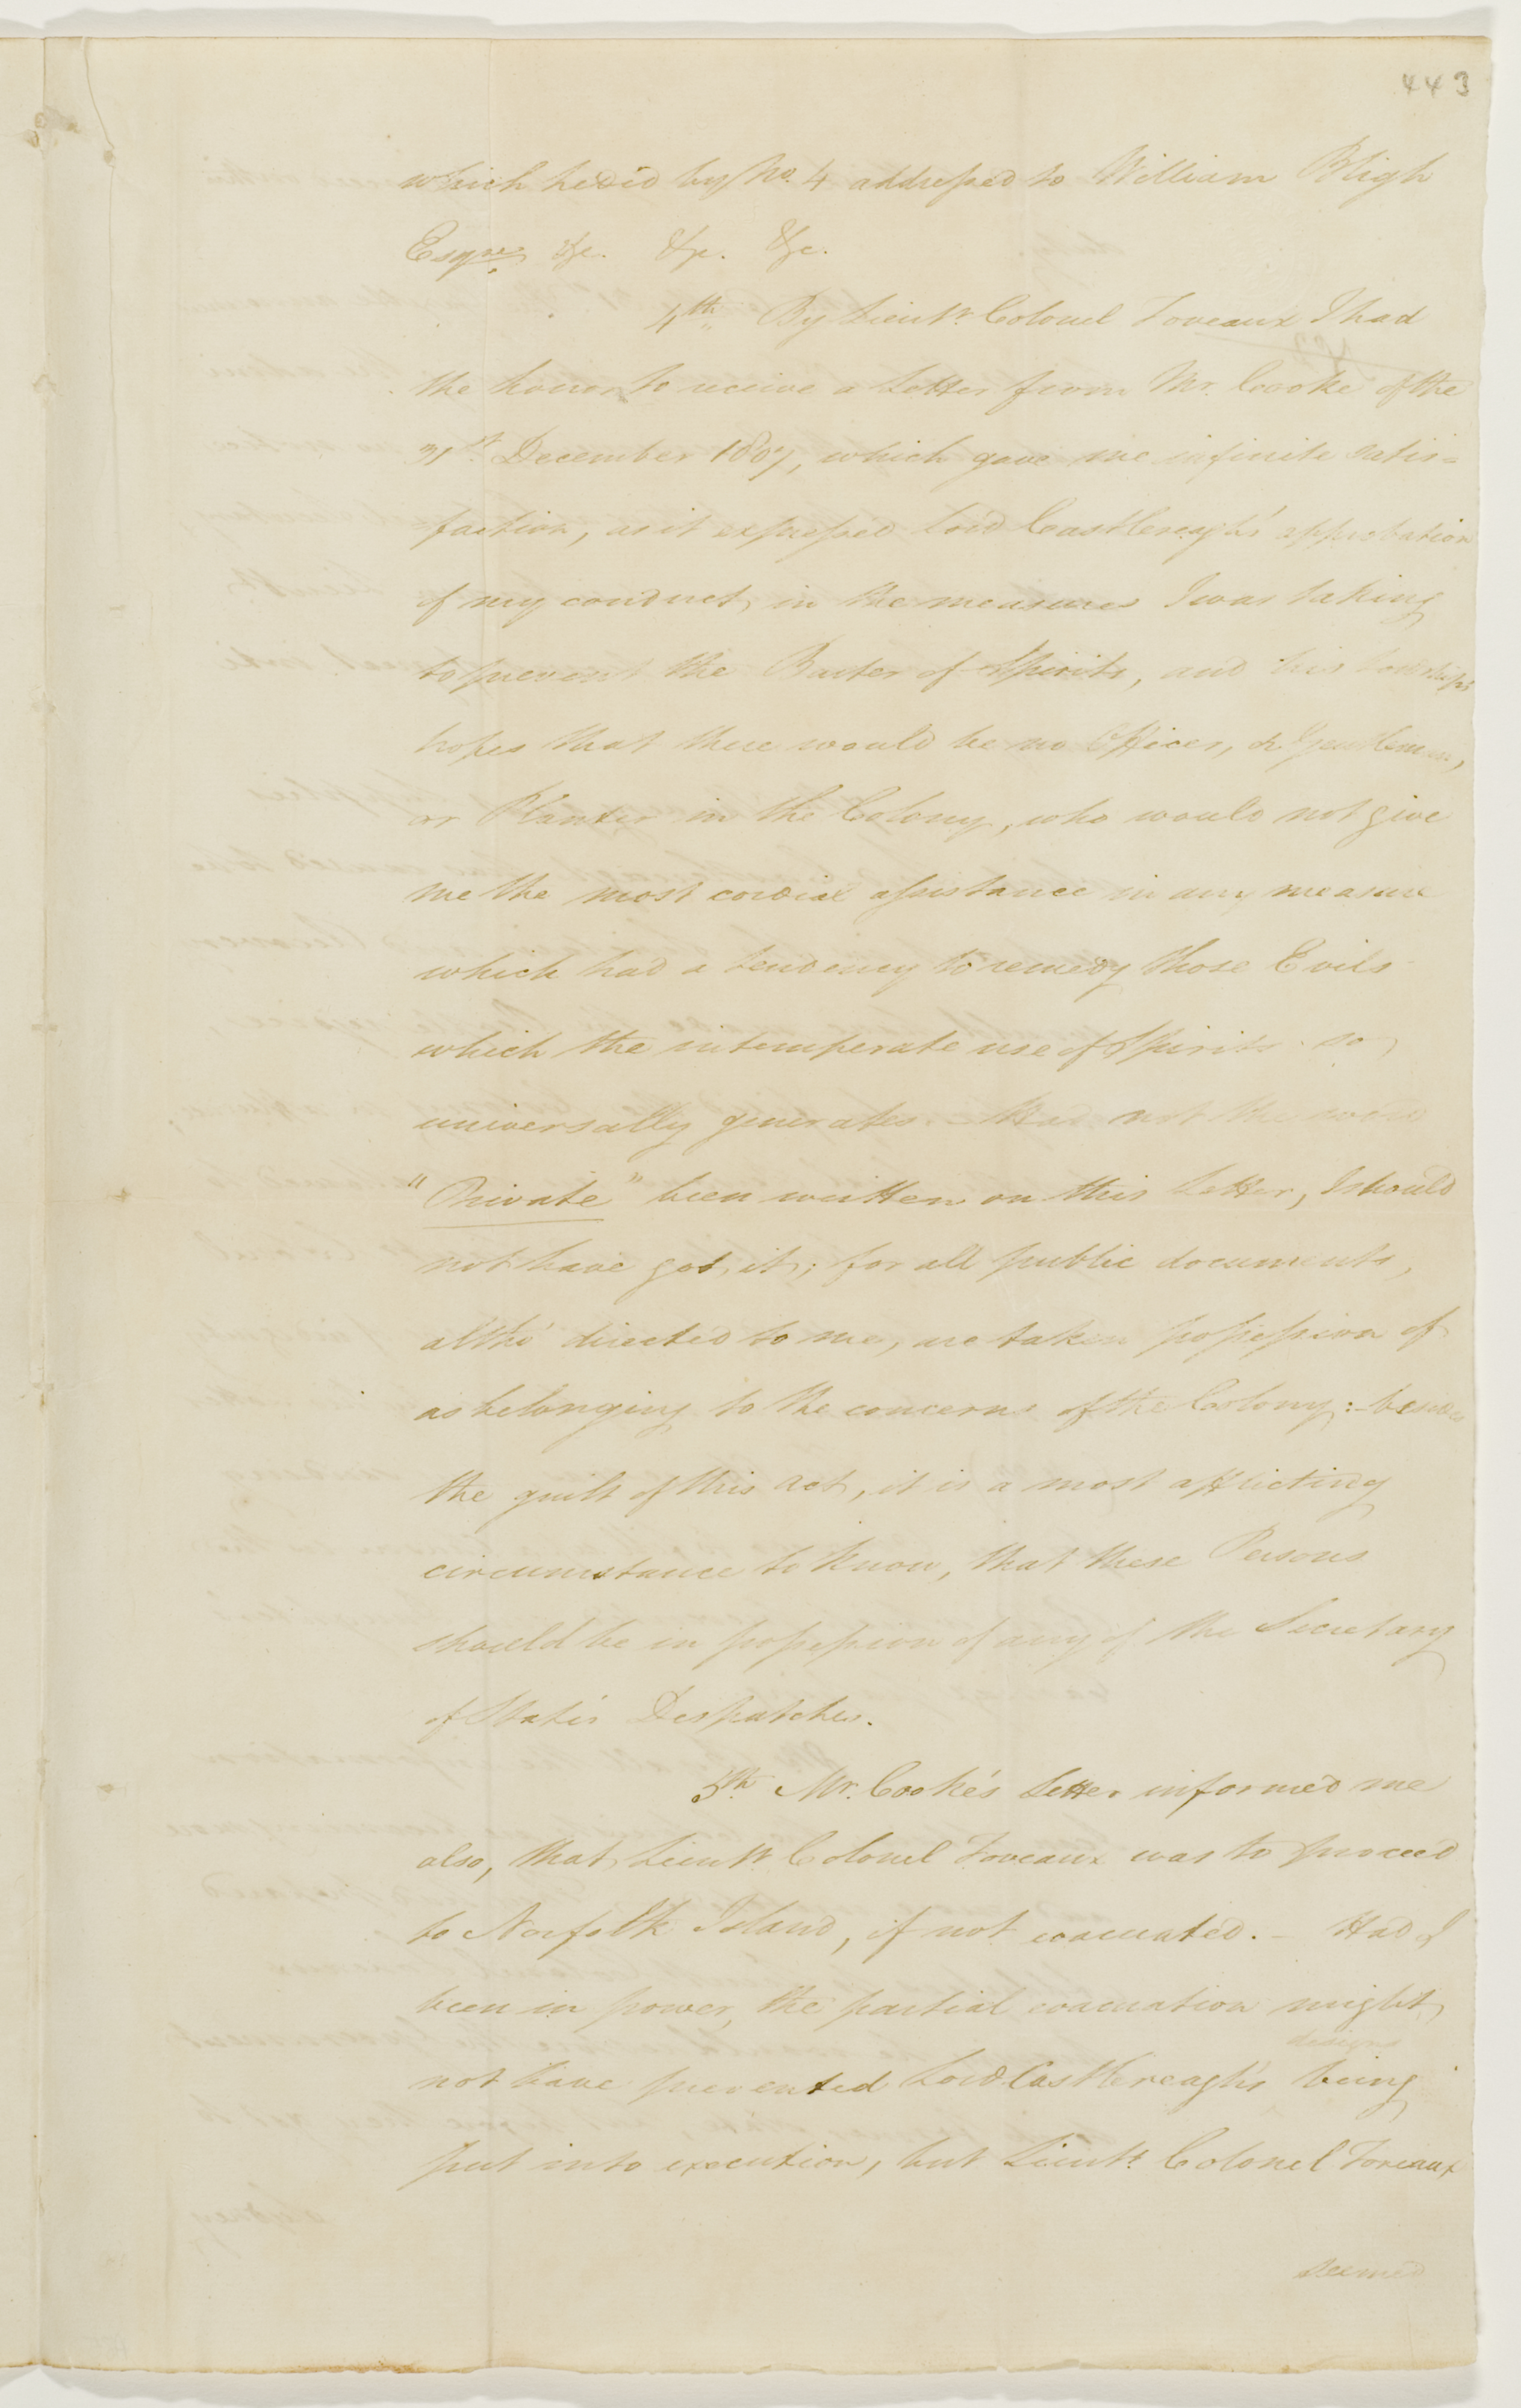 443
which he did by No. 4 addressed to William Bligh
Esqre. &c. &c. &c.
4th. By Lieutt. Colonel Foveaux I had
the honor to receive a Letter from Mr. Cooke of the
31st. December 1807, which gave me infinite satis=
faction, as it expressed Lord Castlereagh's approbation
of my conduct, in the measures I was taking
to prevent the Barter of Spirits, and his Lordships
hopes that there would be no Officer, or Gentleman,
or Planter in the Colony, who would not give
me the most cordial assistance in any measure
which had a tendency to remedy those Evils
which the intemperate use of Spirits so
universally generates. – Had not the word
"Private" been written on this Letter, I should
not have got it; for all public documents,
altho' directed to me, are taken possession of
as belonging to the concerns of the Colony: – besides
the guilt of this act, it is a most afflicting
circumstance to know, that these Persons
should be in possession of any of the Secretary
of State's Despatches.
5th. Mr. Cooke's Letter informed me
also, that Lieutt. Colonel Foveaux was to proceed
to Norfolk Island, if not evacuated. – Had I
been in power, the partial evacuation might
designs
not have prevented Lord Castlereagh's being
put into execution, but Lieutt. Colonel Foveaux
seemed